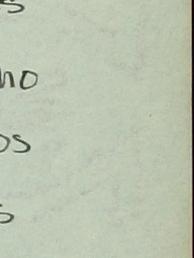 s
ho
os
s